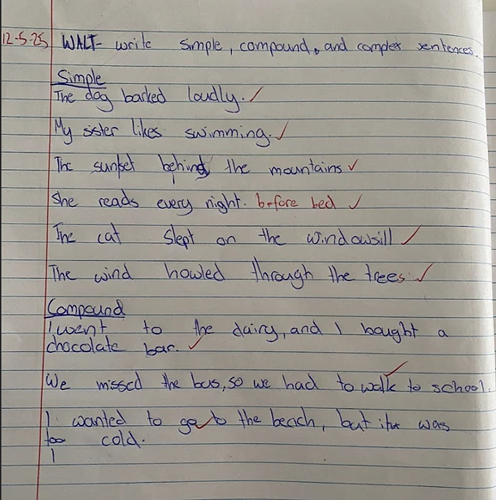 12-5-25 WALT- write simple, compound, and complex sentences.
Simple
The dog barked loudly.
My sister likes swimming.
The sunset behind the mountains
She reads every night. before bed
The cat slept on the windowsill
The wind howled through the trees.
Compound
I went to the dairy, and I bought a
chocolate bar.
We missed the bus, so we had to walk to school.
I wanted to go to the beach, but it was
too cold.